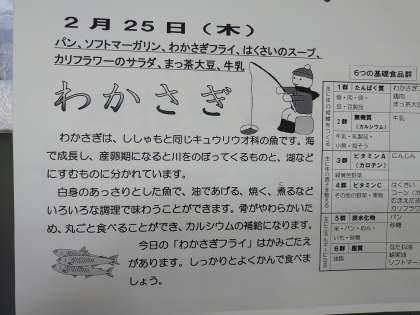 2月25日(木)
パン、ソフトマーガリン、わかさぎフライ、はくさいのスープ、
カリフラワーのサラダ、まっ茶大豆、牛乳
わかさぎ
わかさぎは、ししゃもと同じキュウリウオ科の魚です。海
で成長し、産卵期になると川をのぼってくるものと、湖などに
すむものに分かれています。
白身のあっさりとした魚で、油であげる、焼く、煮るなど
いろいろな調理で味わうことができます。骨がやわらかいた
め、丸ごと食べることができ、カルシウムの補給になります。
今日の「わかさぎフライ」はかみごたえ
があります。しっかりとよくかんで食べま
しょう。
6つの基礎食品群
1群 たんぱく質
わかさぎ
鶏肉
まっ茶大豆
2群 無機質
(カルシウム)
牛乳
3群 ビタミンA
(カロテン)
にんじん
緑黄色野菜
4群 ビタミンC
はくさい
コーン
カリフラワー
5群 炭水化物
パン
砂糖
6群 脂質
油脂
ソフトマー